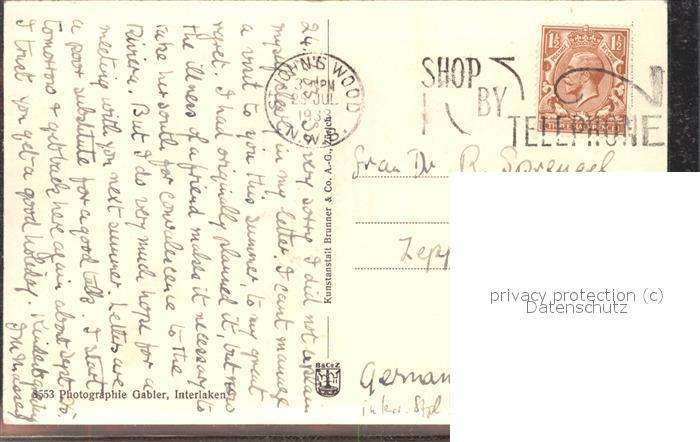 24.
very sorry I did not explain
myself clearly in my letter. I can't manage
a visit to you this summer, to my great
regret. I had originally planned it, but now
the illness of a friend makes it necessary to
take her south for convalescence to the
Riviera. But I do very much hope for a
meeting with you next summer. Letters are
a poor substitute for a good talk. I start
tomorrow & get back here again about Sept. 10.
I trust you get a good holiday. Kindest
ST JOHN'S WOOD
PM
JUL
N.W.8
SHOP
BY
TELEPHONE
1½ 1½
Frau Dr R. Sprengel
Zepp
German
B&CoZ
Kunstanstalt Brunner & Co. A.-G. Zürich
8553 Photographie Gabler, Interlaken
privacy protection (c)
Datenschutz